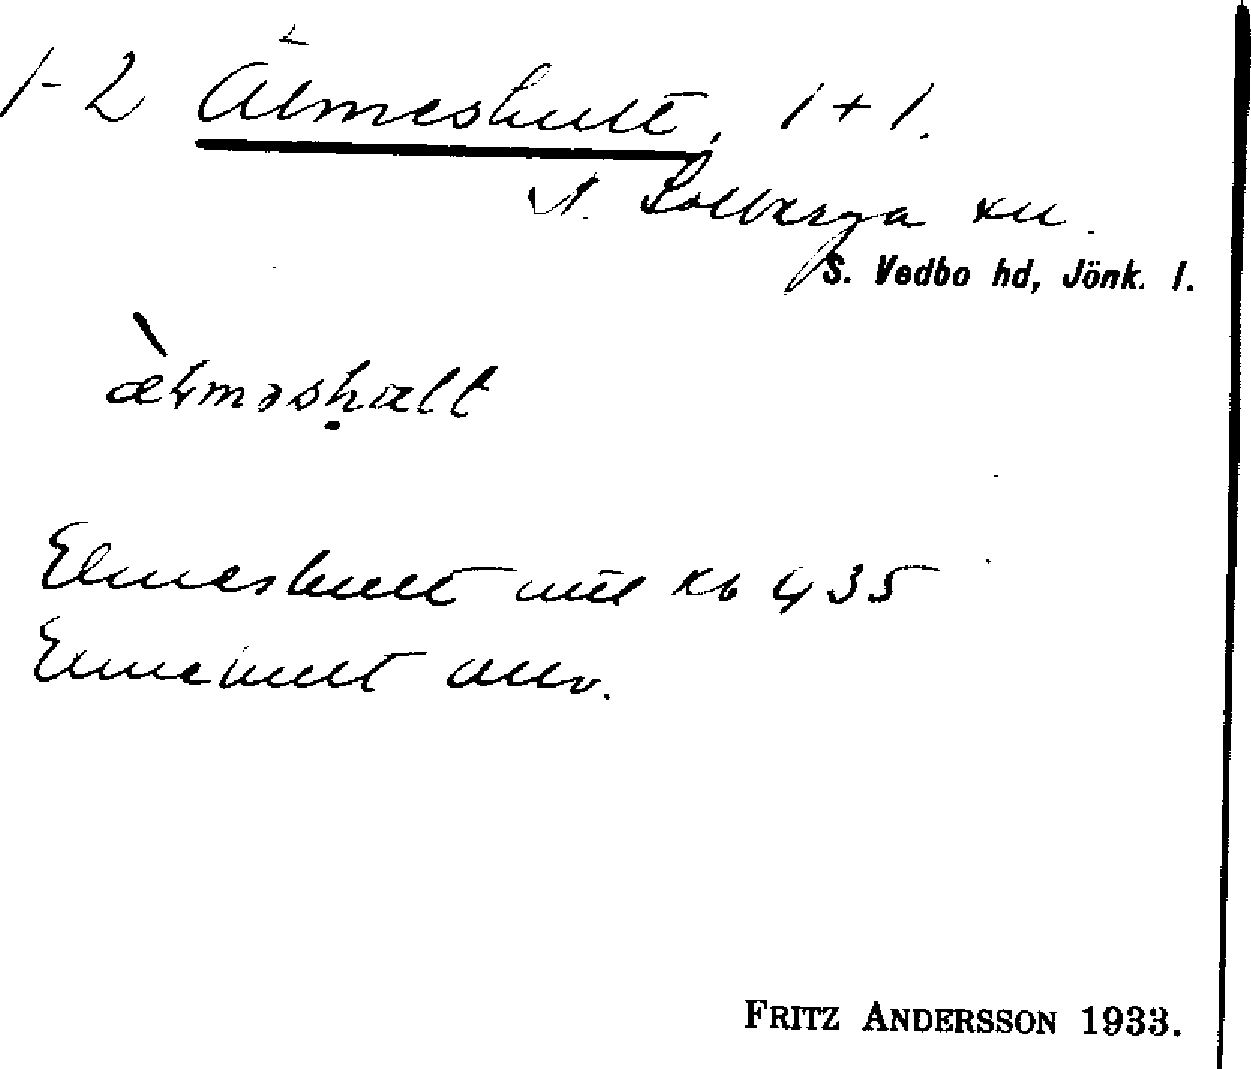 1-2 Älmeshult, 1+1.
N. Solberga sn.
S. Vedbo hd, Jönk. l.
æ̀ɫməsḥallt
Elmeshult mtl kb 435
Elmehult allm.
FRITZ ANDERSSON 1933.